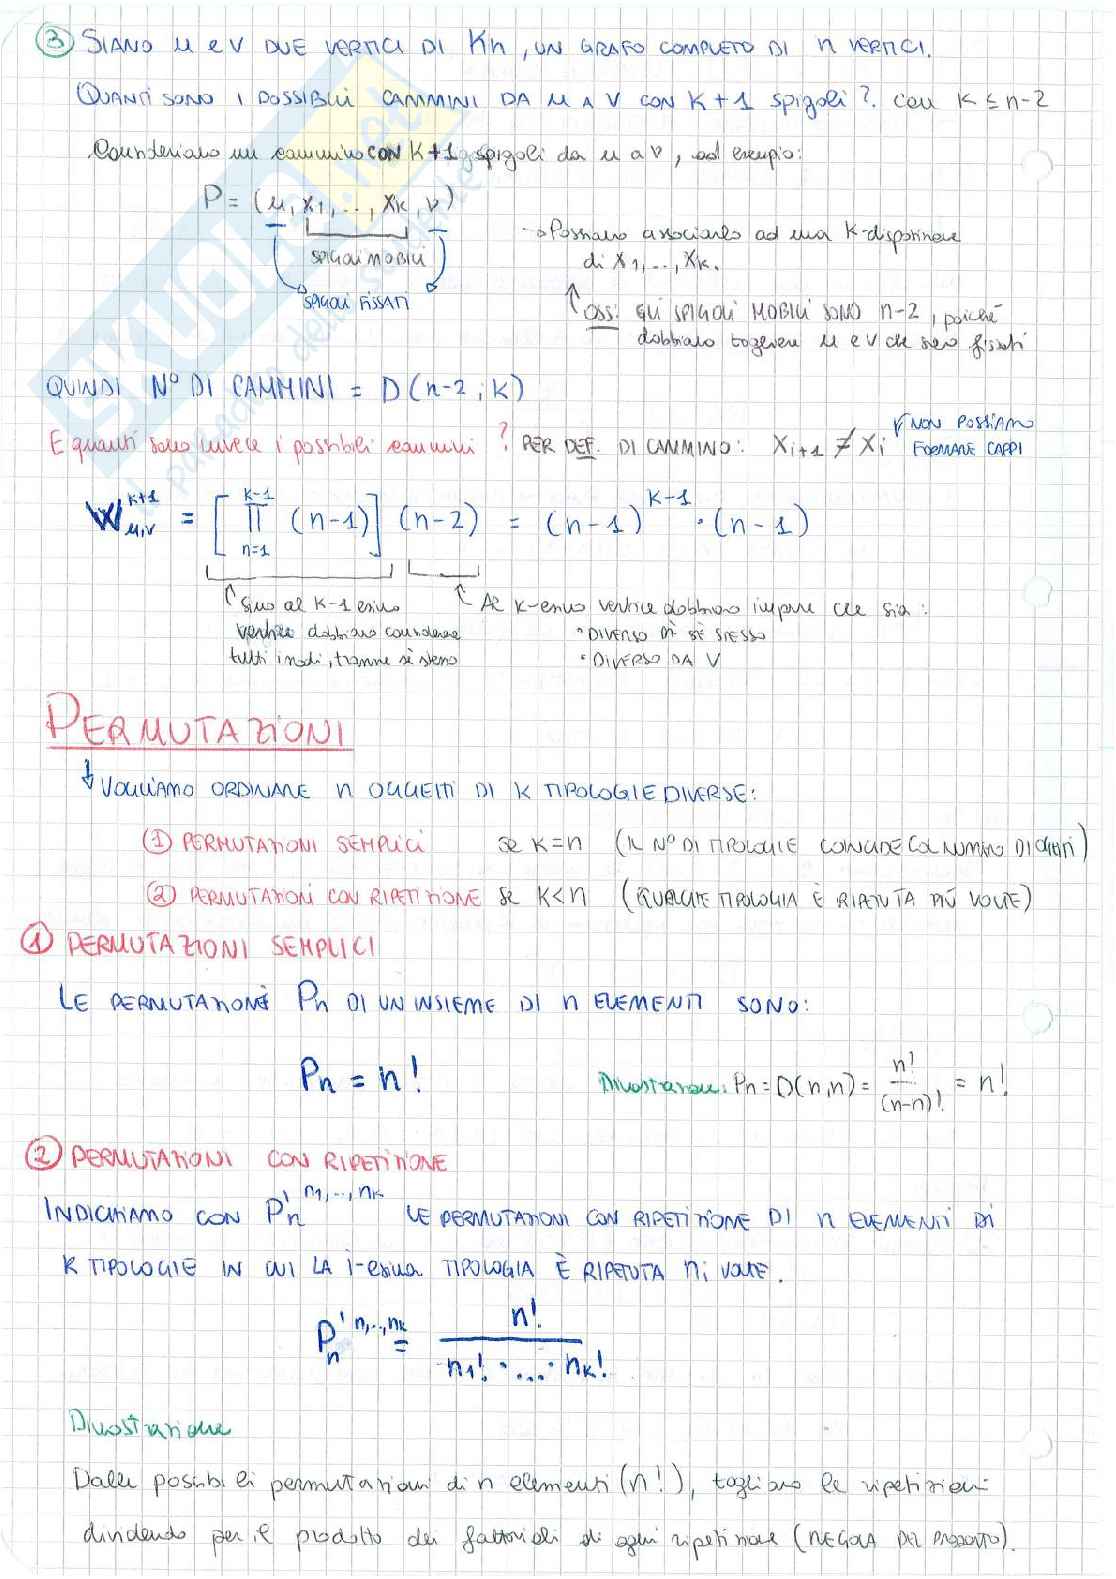 ③ SIANO u e v DUE VERTICI DI Kn, UN GRAFO COMPLETO DI n VERTICI.
QUANTI SONO I POSSIBILI CAMMINI DA u A v CON K+1 spigoli? con K ≤ n-2
Consideriamo un cammino CON K+1 spigoli da u a v, ad esempio:
P = (u, x1, ..., xk, v)
SPIGOLI MOBILI
SPIGOLI FISSATI
→ Possiamo associarlo ad una K-disposizione
di x1, ..., xk.
OSS: GLI SPIGOLI MOBILI SONO n-2, poiché
dobbiamo togliere u e v che sono fissati
QUINDI N° DI CAMMINI = D(n-2; K)
E quanti sono invece i possibili cammini? PER DEF. DI CAMMINO: Xi+1 ≠ Xi NON POSSIAMO
FORMARE CAPPI
W^{k+1}_{u,v} = [∏_{n=1}^{k-1} (n-1)] (n-2) = (n-1)^{k-1} · (n-1)
Sino al K-1 esimo
vertice dobbiamo considerare
tutti i nodi, tranne sè stesso
Al K-esimo vertice dobbiamo imporre che sia:
• DIVERSO DI SÈ STESSO
• DIVERSO DA V
PERMUTAZIONI
↓ VOGLIAMO ORDINARE n OGGETTI DI K TIPOLOGIE DIVERSE:
① PERMUTAZIONI SEMPLICI se K=n (IL N° DI TIPOLOGIE COINCIDE COL NUMERO DI OGGETTI)
② PERMUTAZIONI CON RIPETIZIONE se K<n (QUALCHE TIPOLOGIA È RIPETUTA PIÙ VOLTE)
① PERMUTAZIONI SEMPLICI
LE PERMUTAZIONI Pn DI UN INSIEME DI n ELEMENTI SONO:
Pn = n!
Dimostrazione: Pn = D(n,n) = n!/(n-n)! = n!
② PERMUTAZIONI CON RIPETIZIONE
INDICHIAMO CON P'n^{n1,..,nk} LE PERMUTAZIONI CON RIPETIZIONE DI n ELEMENTI DI
K TIPOLOGIE IN CUI LA i-esima TIPOLOGIA È RIPETUTA ni VOLTE.
P'n^{n,..,nk} = n!/(n1! · ... · nk!)
Dimostrazione
Dalle possibili permutazioni di n elementi (n!), togliamo le ripetizioni
dividendo per il prodotto dei fattoriali di ogni ripetizione (REGOLA DEL PRODOTTO).